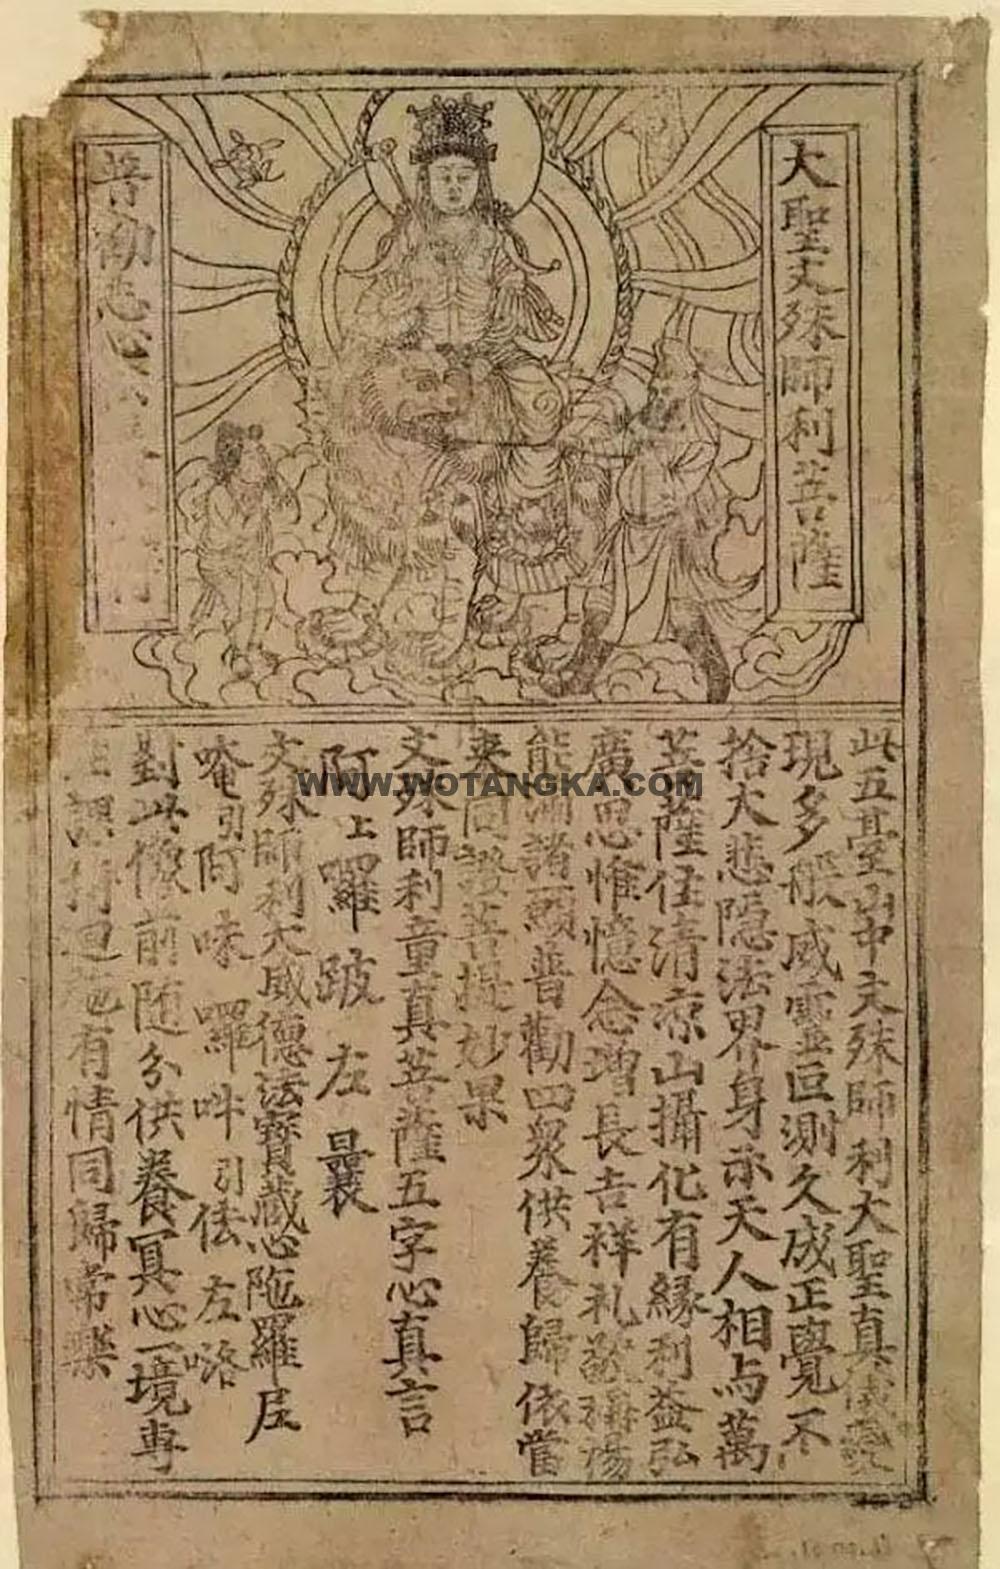 大聖文殊師利菩薩
普勸志心
此五臺山中文殊師利大聖真儀
現多般威靈叵測久成正覺不
捨大悲隱法界身示天人相与萬
菩薩住清凉山攝化有緣利益弘
廣思惟憶念增長吉祥礼敬稱揚
能滿諸願普勸四衆供養歸依當
來同證菩提妙果
文殊師利童真菩薩五字心真言
阿上 囉 跛 左 曩
文殊師利大威德法寶藏心陁羅尼
唵引阿味 囉𤙖引佉左咯
對此像前随分供養冥心一境專
注課持迴施有情同歸常樂
WWW.WOTANGKA.COM